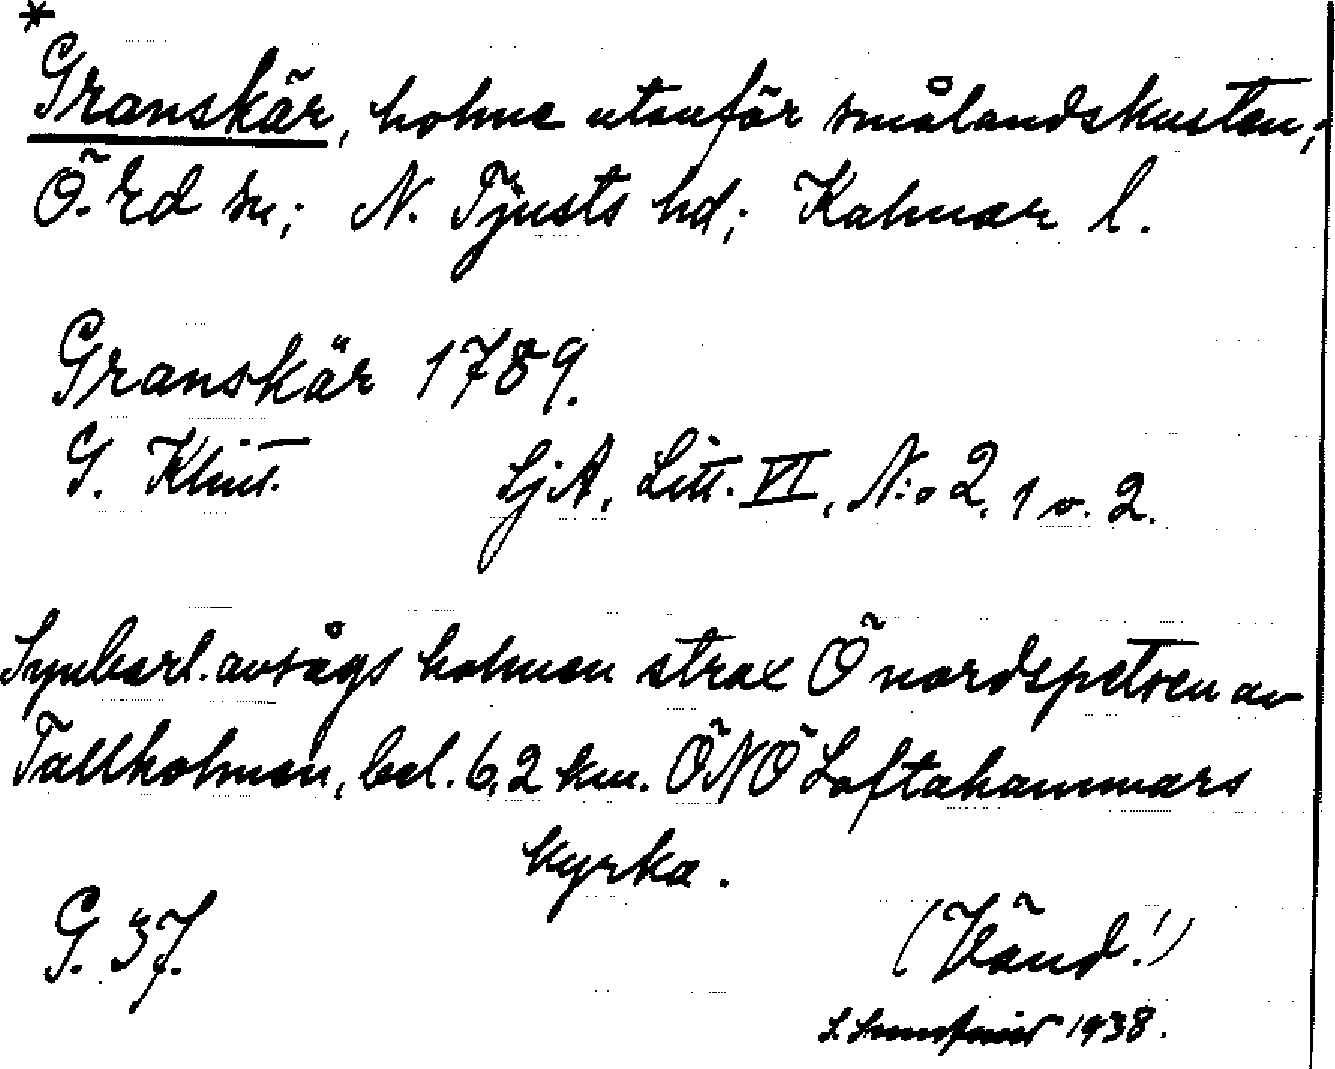 *
Granskär, holme utanför smålandskusten,
Ö. Ed sn; N. Tjusts hd; Kalmar l.
Granskär 1789.
G. Klint. SjA, Litt. VI, N:o 2, 1 o. 2.
Synbarl. avsågs holmen strax Ö nordspetsen av
Tallholmen, bel. 6,2 km. ÖNÖ Loftahammars
kyrka.
G. 37.
(Vänd!)
1938.